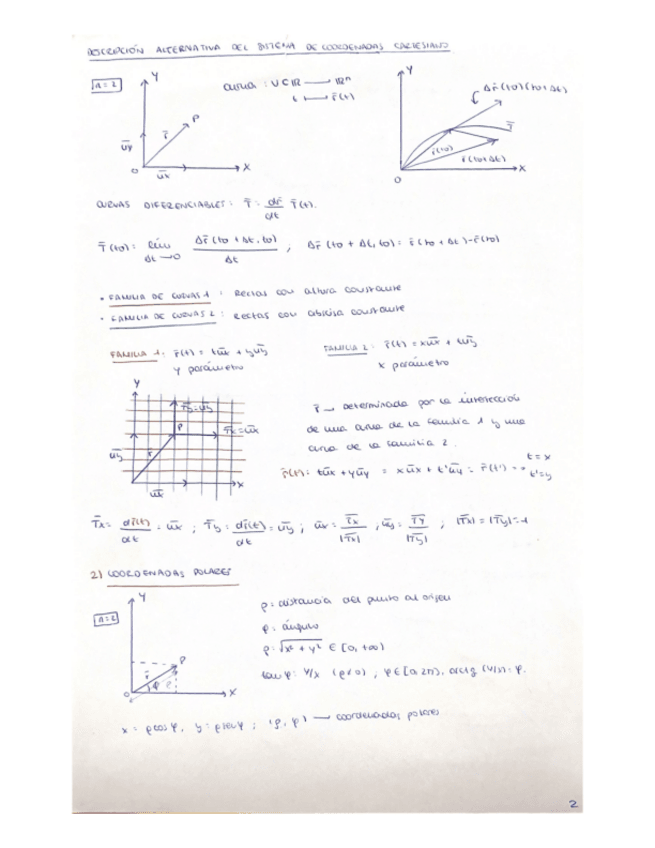 DESCRIPCIÓN ALTERNATIVA DEL SISTEMA DE COORDENADAS CARTESIANO
n=2
Y
P
r̄
ūy
O
ūx
X
curva : U⊂ℝ ⟶ ℝⁿ
t ⟼ r̄(t)
Y
Δr̄(t0)(t0+Δt)
T̄
r̄(t0)
r̄(t0+Δt)
O
X
CURVAS DIFERENCIABLES : T̄ = dr̄/dt T̄(t).
T̄(t0) = lím Δt→0 Δr̄(t0+Δt, t0)/Δt ; Δr̄(t0+Δt, t0) = r̄(t0+Δt) - r̄(t0)
· FAMILIA DE CURVAS 1 : Rectas con altura constante
· FAMILIA DE CURVAS 2 : Rectas con abscisa constante
FAMILIA 1: r̄(t) = tūx + yūy
y parámetro
FAMILIA 2 : r̄(t) = xūx + tūy
x parámetro
Y
T̄y=ūy
P
T̄x=ūx
ūy
r̄
ūx
X
r̄ → determinada por la intersección
de una curva de la familia 1 y una
curva de la familia 2.
r̄(t) = tūx + yūy = xūx + t'ūy = r̄(t')
t=x
t'=y
T̄x = dr̄(t)/dt = ūx ; T̄y = dr̄(t)/dt = ūy ; ūx = T̄x/|T̄x| , ūy = T̄y/|T̄y| ; |T̄x| = |T̄y| = 1
2) COORDENADAS POLARES
n=2
Y
P
r̄
φ
ρ
O
X
ρ = distancia del punto al origen
φ : ángulo
ρ = √x² + y² ∈ [0, +∞)
tan φ = y/x (ρ≠0) , φ∈[0, 2π), arctg (y/x) = φ.
x = ρcosφ, y = ρsenφ ; (ρ, φ) ⟶ coordenadas polares
2